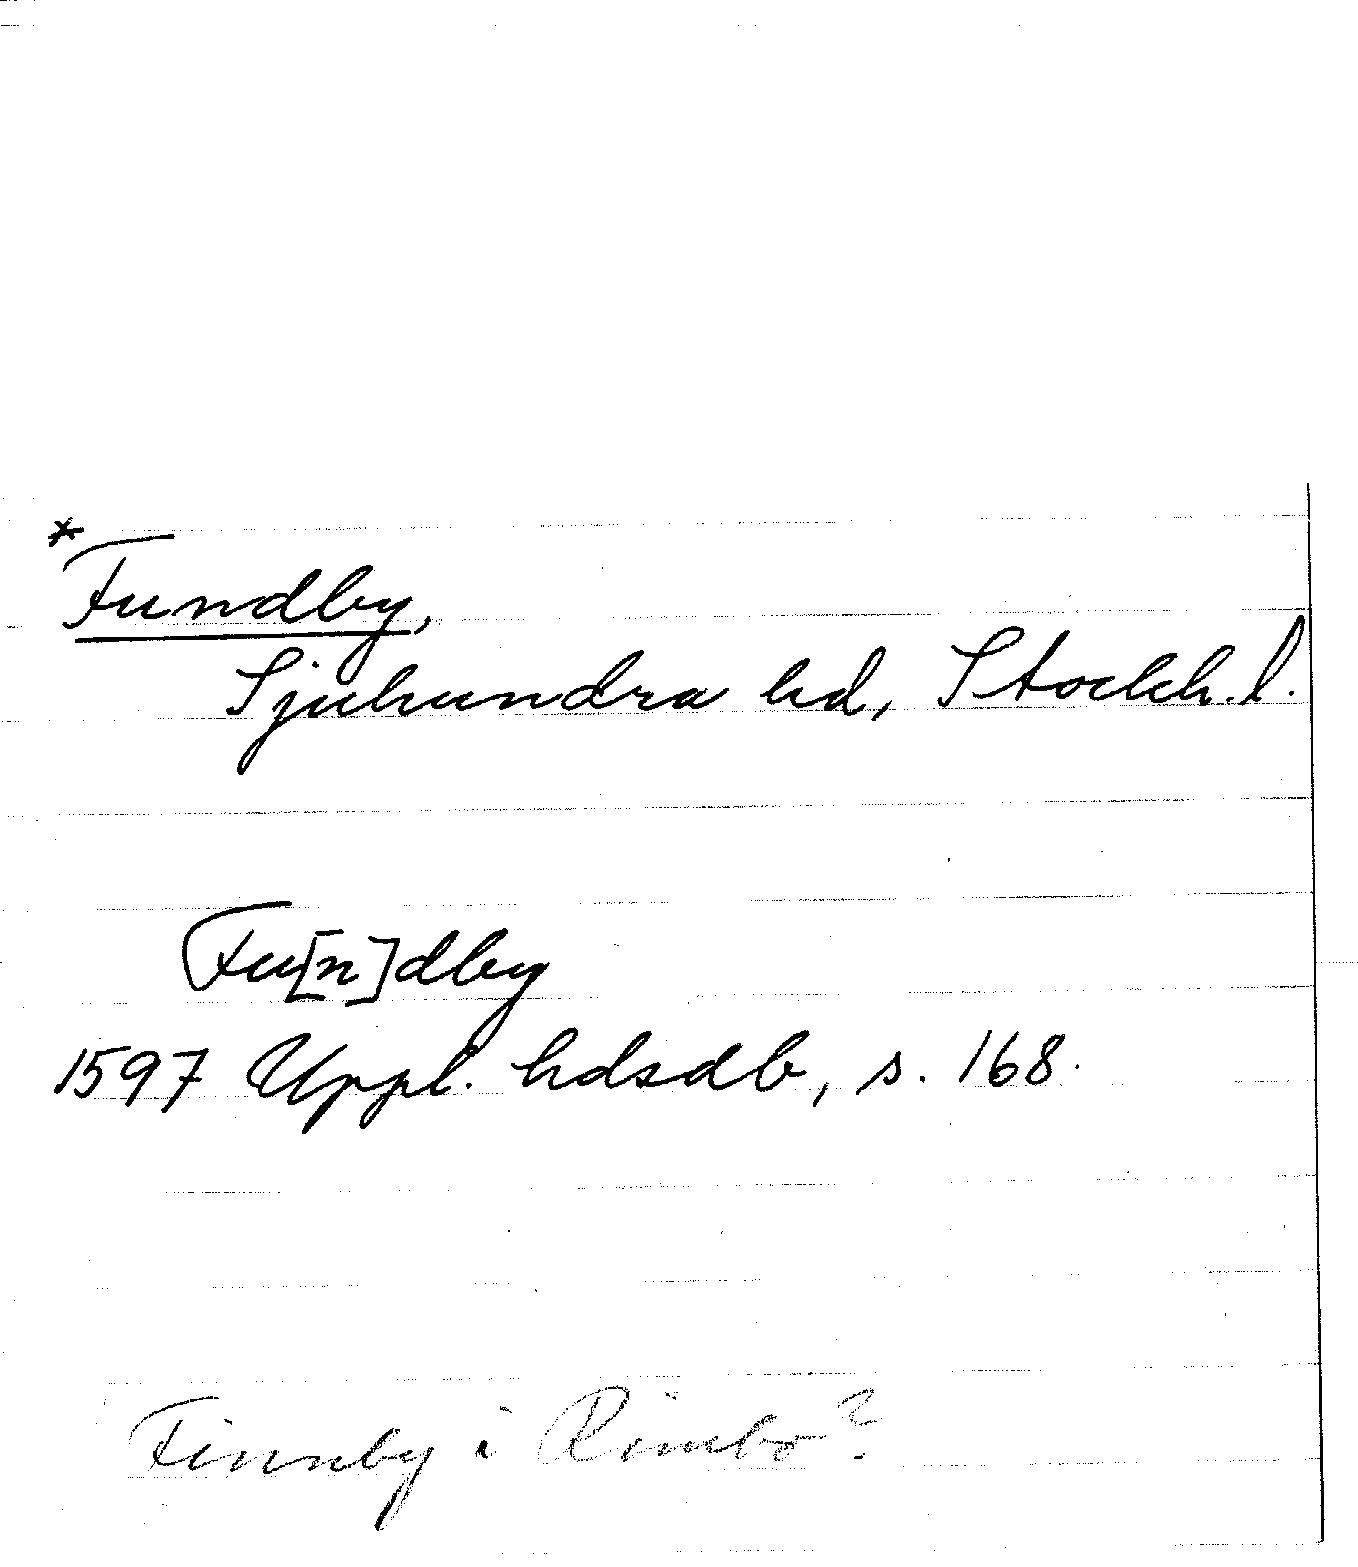 * Fundby,
Sjuhundra hd, Stockh. l.
Fu[n]dby
1597 Uppl. hdsdb, s. 168.
Finnby i Rimbo?